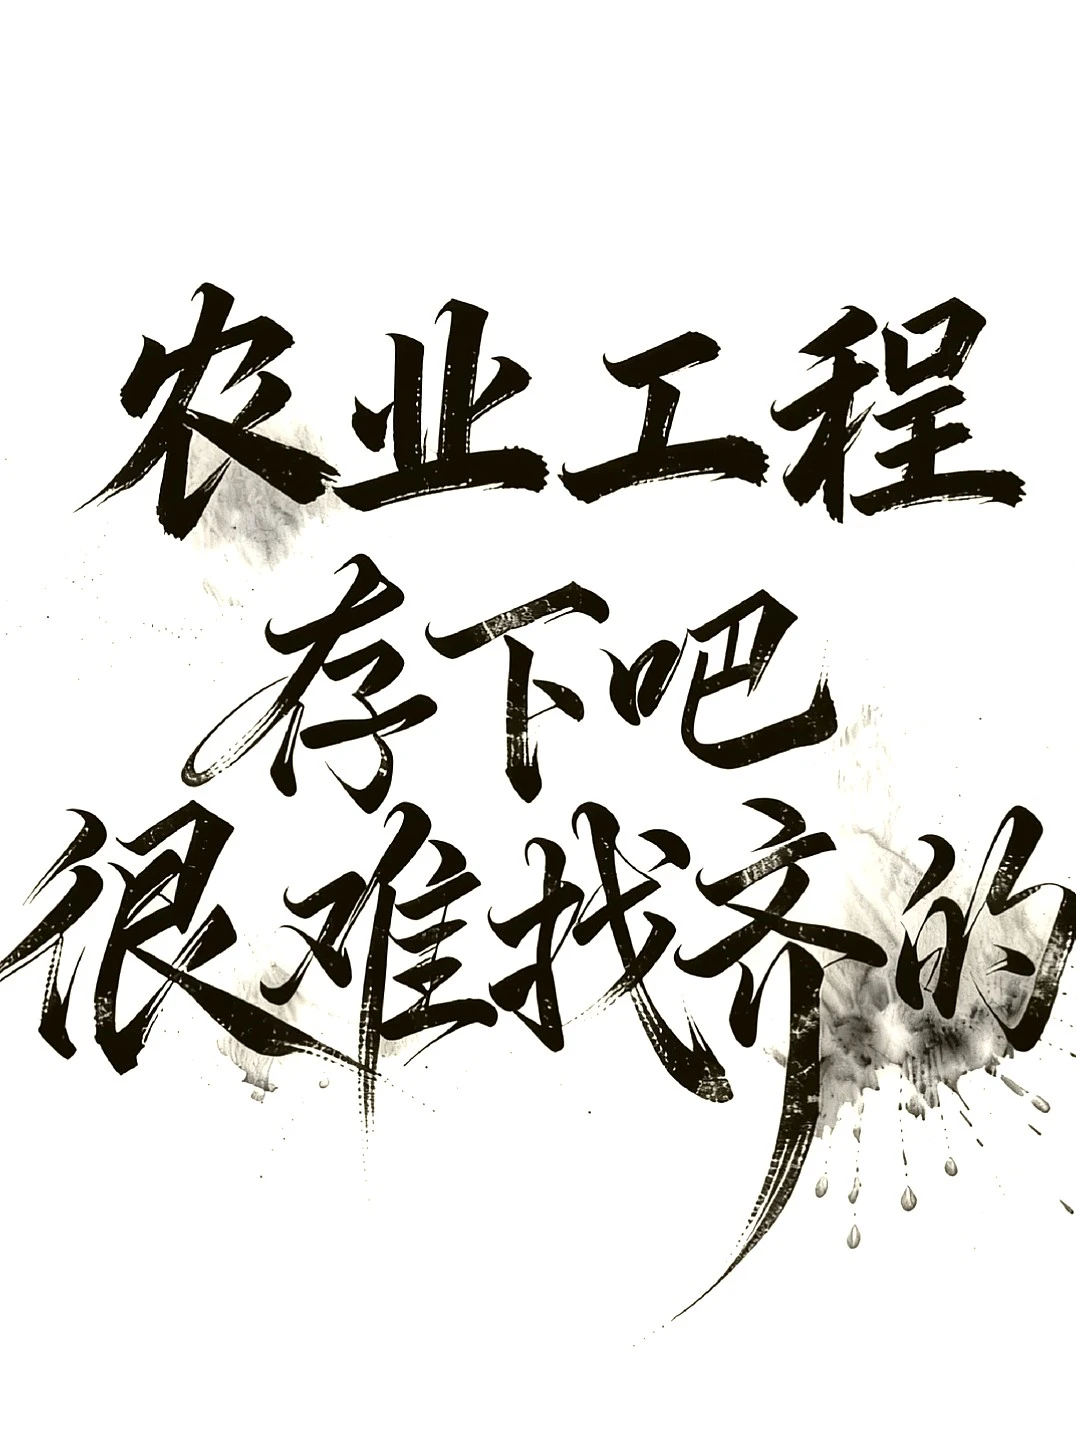 农业工程
存下吧
很难找齐的